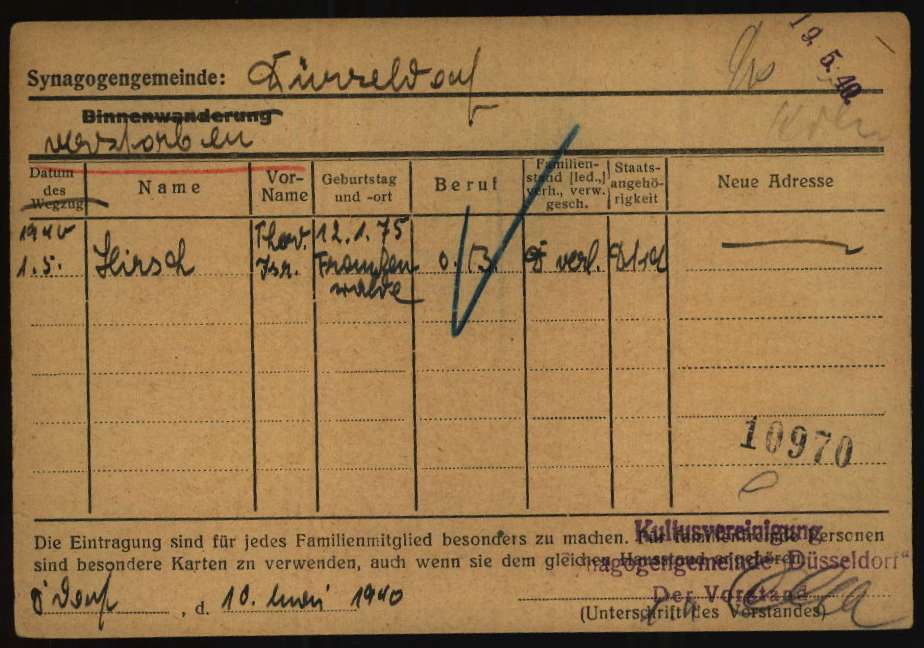 19.5.40
Synagogengemeinde: Düsseldorf
Binnenwanderung
verstorben
Datum des Wegzug
Name
Vor-Name
Geburtstag und -ort
Beruf
Familien-stand [led.,] verh., verw. gesch.
Staats-angehö-rigkeit
Neue Adresse
1940 1.5.
Hirsch
Isr.
12.1.75
o. B.
10970
Die Eintragung sind für jedes Familienmitglied besonders zu machen. Für Personen
sind besondere Karten zn verwenden, auch wenn sie dem gleichen
Kultusvereinigung
Synagogengemeinde Düsseldorf"
Der Vorstand
D'dorf, d. 10. 1940
(Unterschrift des Vorstandes)